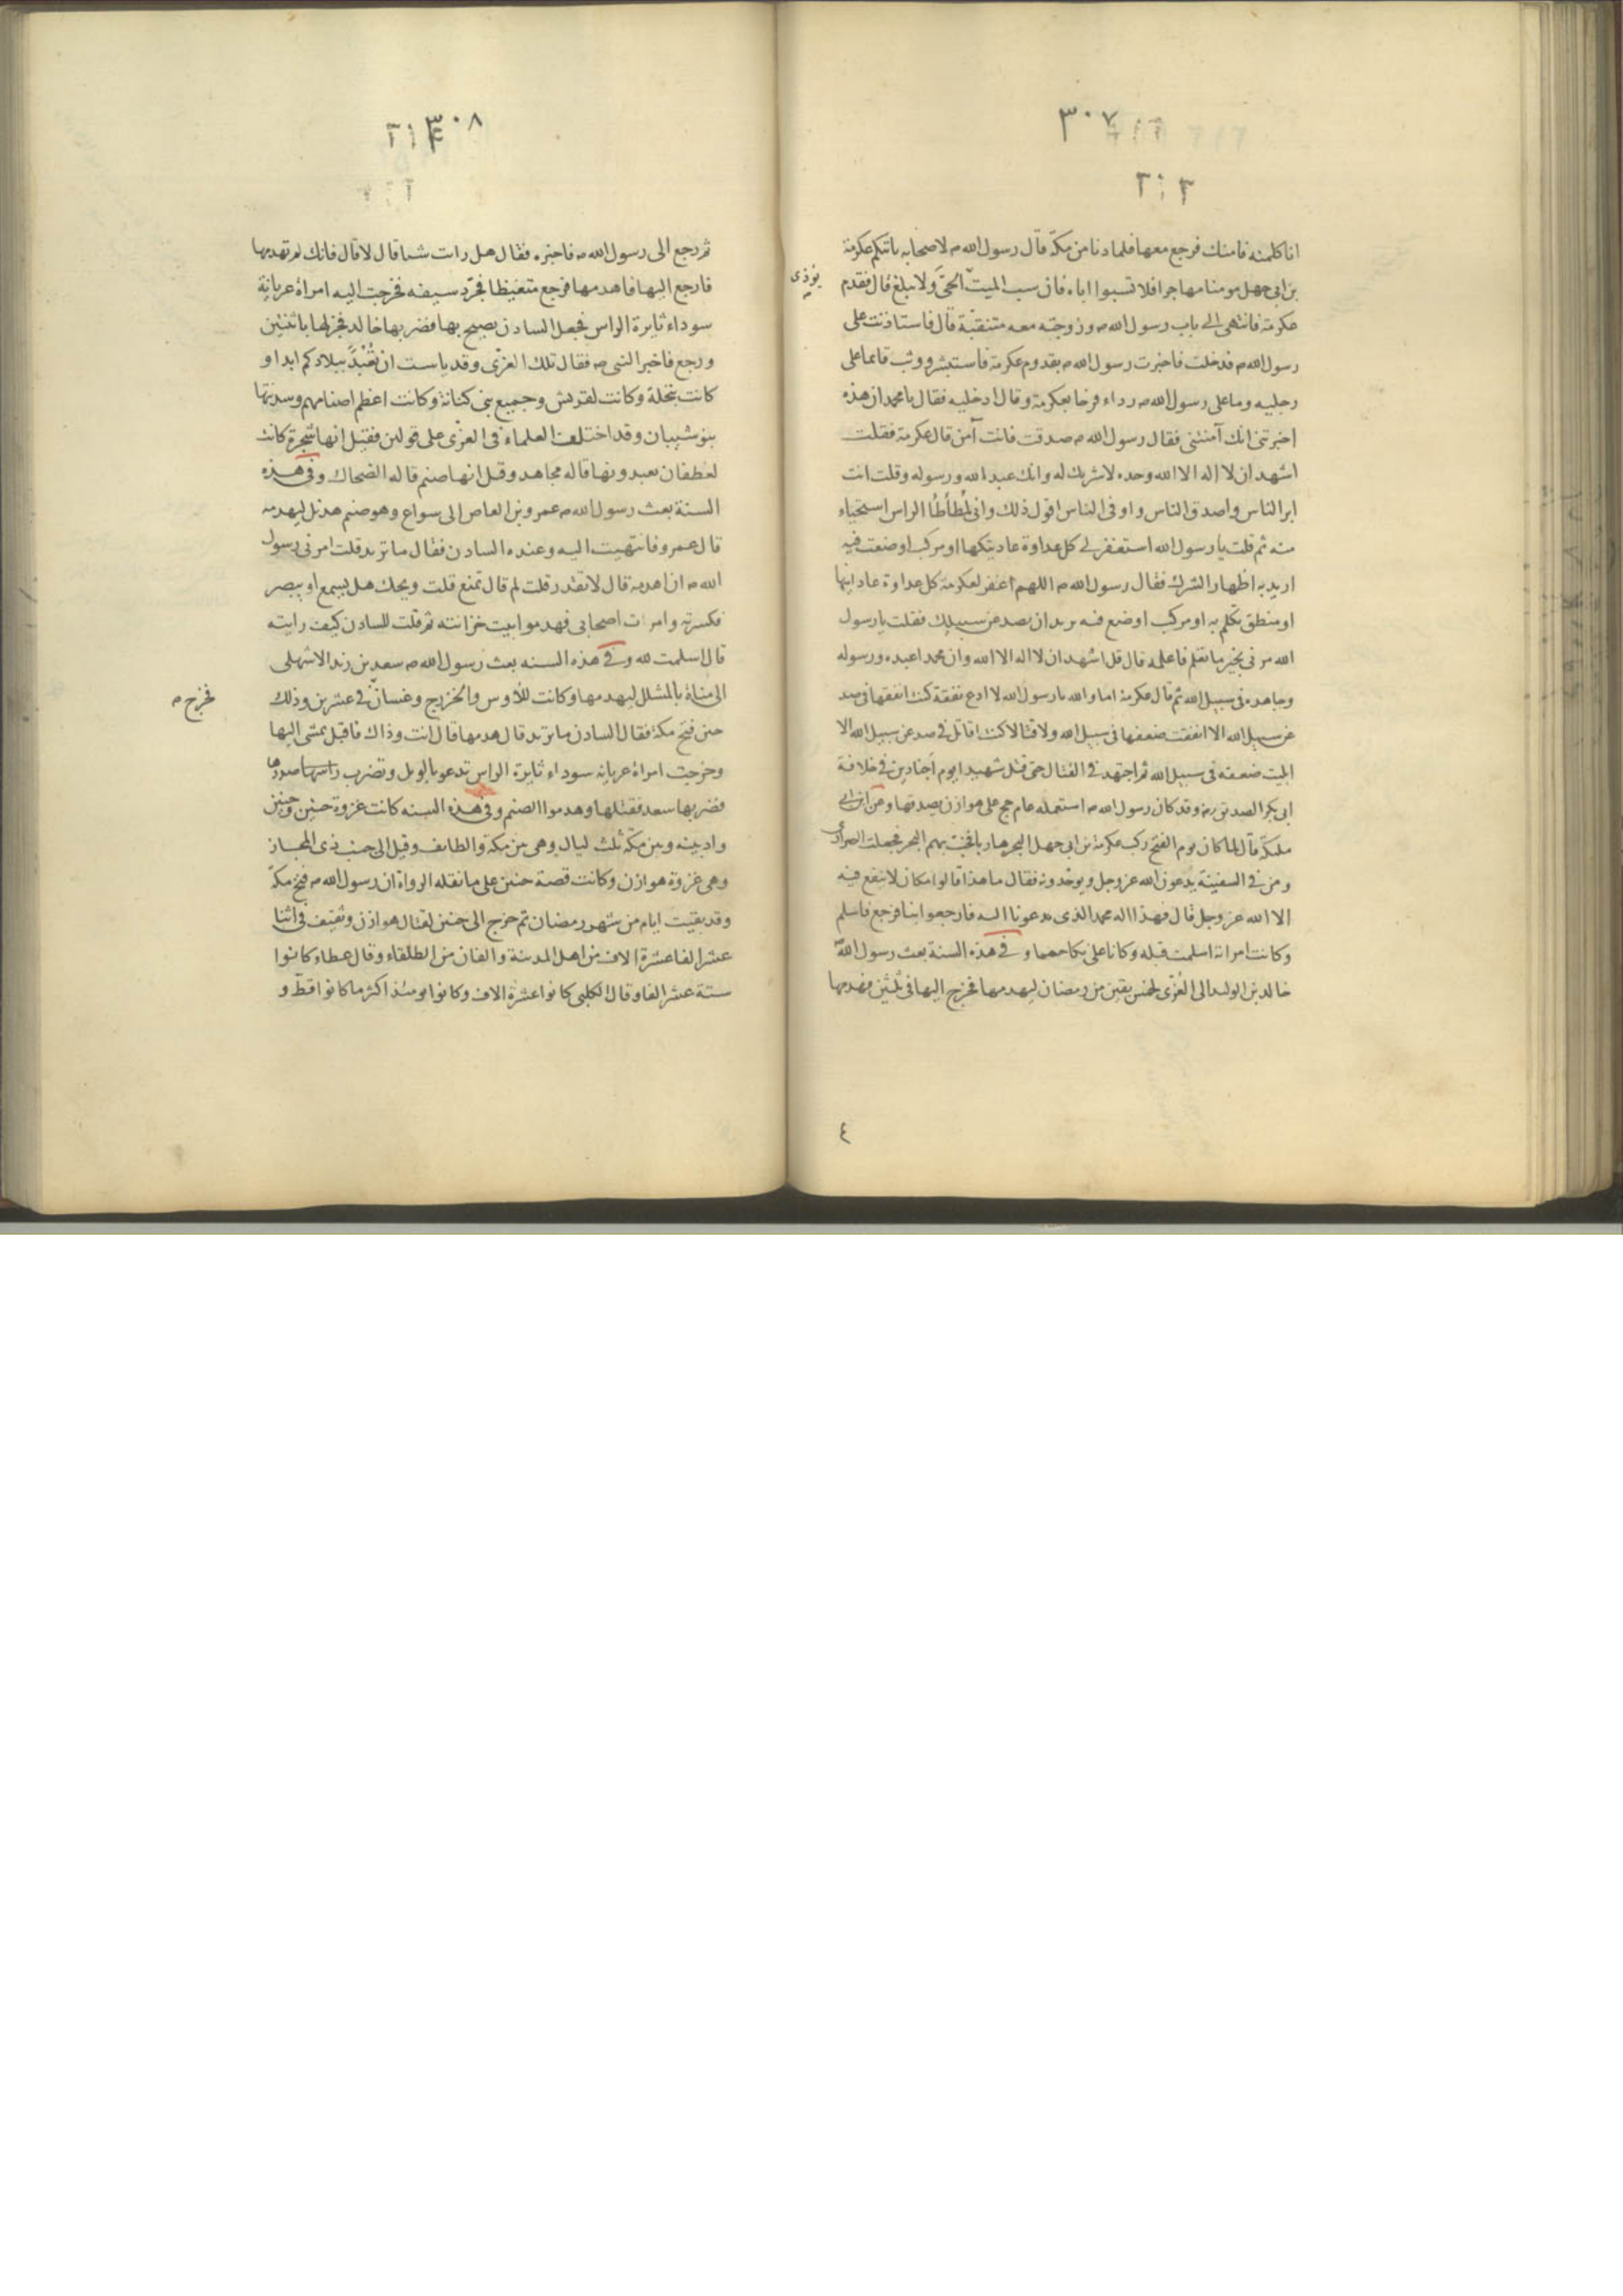 ٣٠٧
انا كلمته فامنك فرجع معها فلما دنا من مكة قال رسول الله ص لاصحابه ياتيكم عكرمة
بن ابى جهل مومنا مهاجرا فلا تسبوا اباه فان سب الميت الحى ولا يبلغ قال فقدم
يوذى
عكرمة فانتهى الى باب رسول الله ص وزوجته معه متنقبة قال فاستاذنت على
رسول الله ص فدخلت فاخبرت رسول الله ص بقدوم عكرمة فاستبشر ووثب قائما على
رجليه وما على رسول الله ص رداء فرحا بعكرمة وقال ادخليه فقال يا محمد ان هذه
اخبرتنى انك آمنتنى فقال رسول الله ص صدقت فانت آمن قال عكرمة فقلت
اشهد ان لا اله الا الله وحده لا شريك له وانك عبد الله ورسوله وقلت انت
ابر الناس واصدق الناس واوفى الناس اقول ذلك وانى لمطأطأ الراس استحياء
منه ثم قلت يا رسول الله استغفر لى كل عداوة عاديتكها او مركب اوضعت فيه
اريد به اظهار الشرك فقال رسول الله ص اللهم اغفر لعكرمة كل عداوة عادانيها
او منطق تكلم به او مركب اوضع فيه يريد ان يصد عن سبيلك فقلت يا رسول
الله مرنى بخير ما تعلم فاعلمه قال قل اشهد ان لا اله الا الله وان محمدا عبده ورسوله
وجاهد فى سبيل الله ثم قال عكرمة اما والله يا رسول الله لا ادع نفقة كنت انفقها فى صد
عن سبيل الله الا انفقت ضعفها فى سبيل الله ولا قتالا كنت اقاتل فى صد عن سبيل الله الا
ابليت ضعفه فى سبيل الله ثم اجتهد فى القتال حتى قتل شهيدا يوم اجنادين فى خلافة
ابى بكر الصديق رض وقد كان رسول الله ص استعمله عام حج على هوازن يصدقها وعن ابن ابى
مليكة قال لما كان يوم الفتح ركب عكرمة بن ابى جهل البحر هاربا فخب بهم البحر فجعلت الصرارى
ومن فى السفينة يدعون الله عز وجل ويوحدونه فقال ما هذا قالوا مكان لا ينفع فيه
الا الله عز وجل قال فهذا اله محمد الذى يدعونا اليه فارجعوا بنا فرجع فاسلم
وكانت امراته اسلمت قبله وكانا على نكاحهما وفى هذه السنة بعث رسول الله
خالد بن الوليد الى العزى لخمس بقين من رمضان ليهدمها فخرج اليها فى ثلثين فهدمها
٤
٣٠٨
ثم رجع الى رسول الله ص فاخبره فقال هل رات شيا قال لا قال فانك لم تهدمها
فارجع اليها فاهدمها فرجع متغيظا فجرد سيفه فخرجت اليه امراة عريانة
سوداء ثايرة الراس فجعل السادن يصيح بها فضربها خالد فجزلها باثنتين
ورجع فاخبر النبى ص فقال تلك العزى وقد ياست ان تعبد ببلادكم ابدا و
كانت بنخلة وكانت لقريش وجميع بنى كنانة وكانت اعظم اصنامهم وسدنتها
بنو شيبان وقد اختلف العلماء فى العزى على قولين فقيل انها شجرة كانت
لغطفان يعبدونها قاله مجاهد وقيل انها صنم قاله الضحاك وفى هذه
السنة بعث رسول الله ص عمرو بن العاص الى سواع وهو صنم هذيل ليهدمه
قال عمرو فانتهيت اليه وعنده السادن فقال ما تريد قلت امرنى رسول
الله ص ان اهدمه قال لا تقدر قلت لم قال تمنع قلت ويحك هل يسمع او يبصر
فكسرته وامرت اصحابى فهدموا بيت خزانته ثم قلت للسادن كيف رايته
قال اسلمت لله وفى هذه السنه بعث رسول الله ص سعد بن زيد الاشهلى
الى مناة بالمشلل ليهدمها وكانت للاوس والخزرج وغسان فى عشرين وذلك
فخرج ص
حين فتح مكة فقال السادن ما تريد قال هدمها قال انت وذاك فاقبل يمشى اليها
وخرجت امراة عريانه سوداء ثايرة الراس تدعو بالويل وتضرب راسها صدرها
فضربها سعد فقتلها وهدموا الصنم وفى هذه السنه كانت غزوة حنين وحنين
واد بينه وبين مكة ثلث ليال وهى بين مكة والطايف وقيل الى جنب ذى المجاز
وهى غزوة هوازن وكانت قصة حنين على ما نقله الرواة ان رسول الله ص فتح مكة
وقد بقيت ايام من شهر رمضان ثم خرج الى حنين لقتال هوازن وثقيف فى اثنا
عشر الفا عشرة الاف من اهل المدينة والفان من الطلقاء وقال عطاء كانوا
ستة عشر الفا وقال الكلبى كانوا عشرة الاف وكانوا يومئذ اكثر ما كانوا قط و